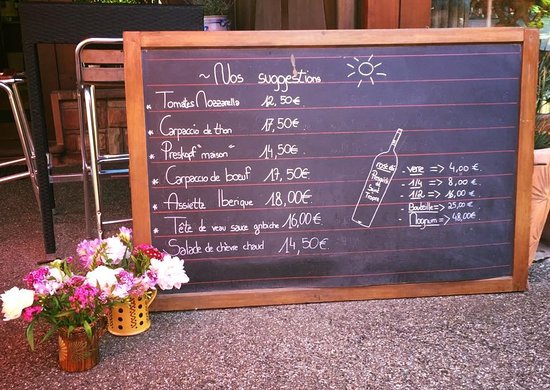 ~ Nos suggestions
* Tomates Mozzarella 12,50€
* Carpaccio de thon 17,50€
* Preskopf "maison" 14,50€
* Carpaccio de bœuf 17,50€
* Assiette Iberique 18,00€
* Tête de veau sauce gribiche 16,00€
* Salade de chèvre chaud 14,50€
rosé de
Presqu'ile
de Saint
Tropez
- verre => 4,00€
- 1/4 => 8,00€
- 1/2 => 16,00€
- Bouteille => 25,00€
- Magnum => 48,00€